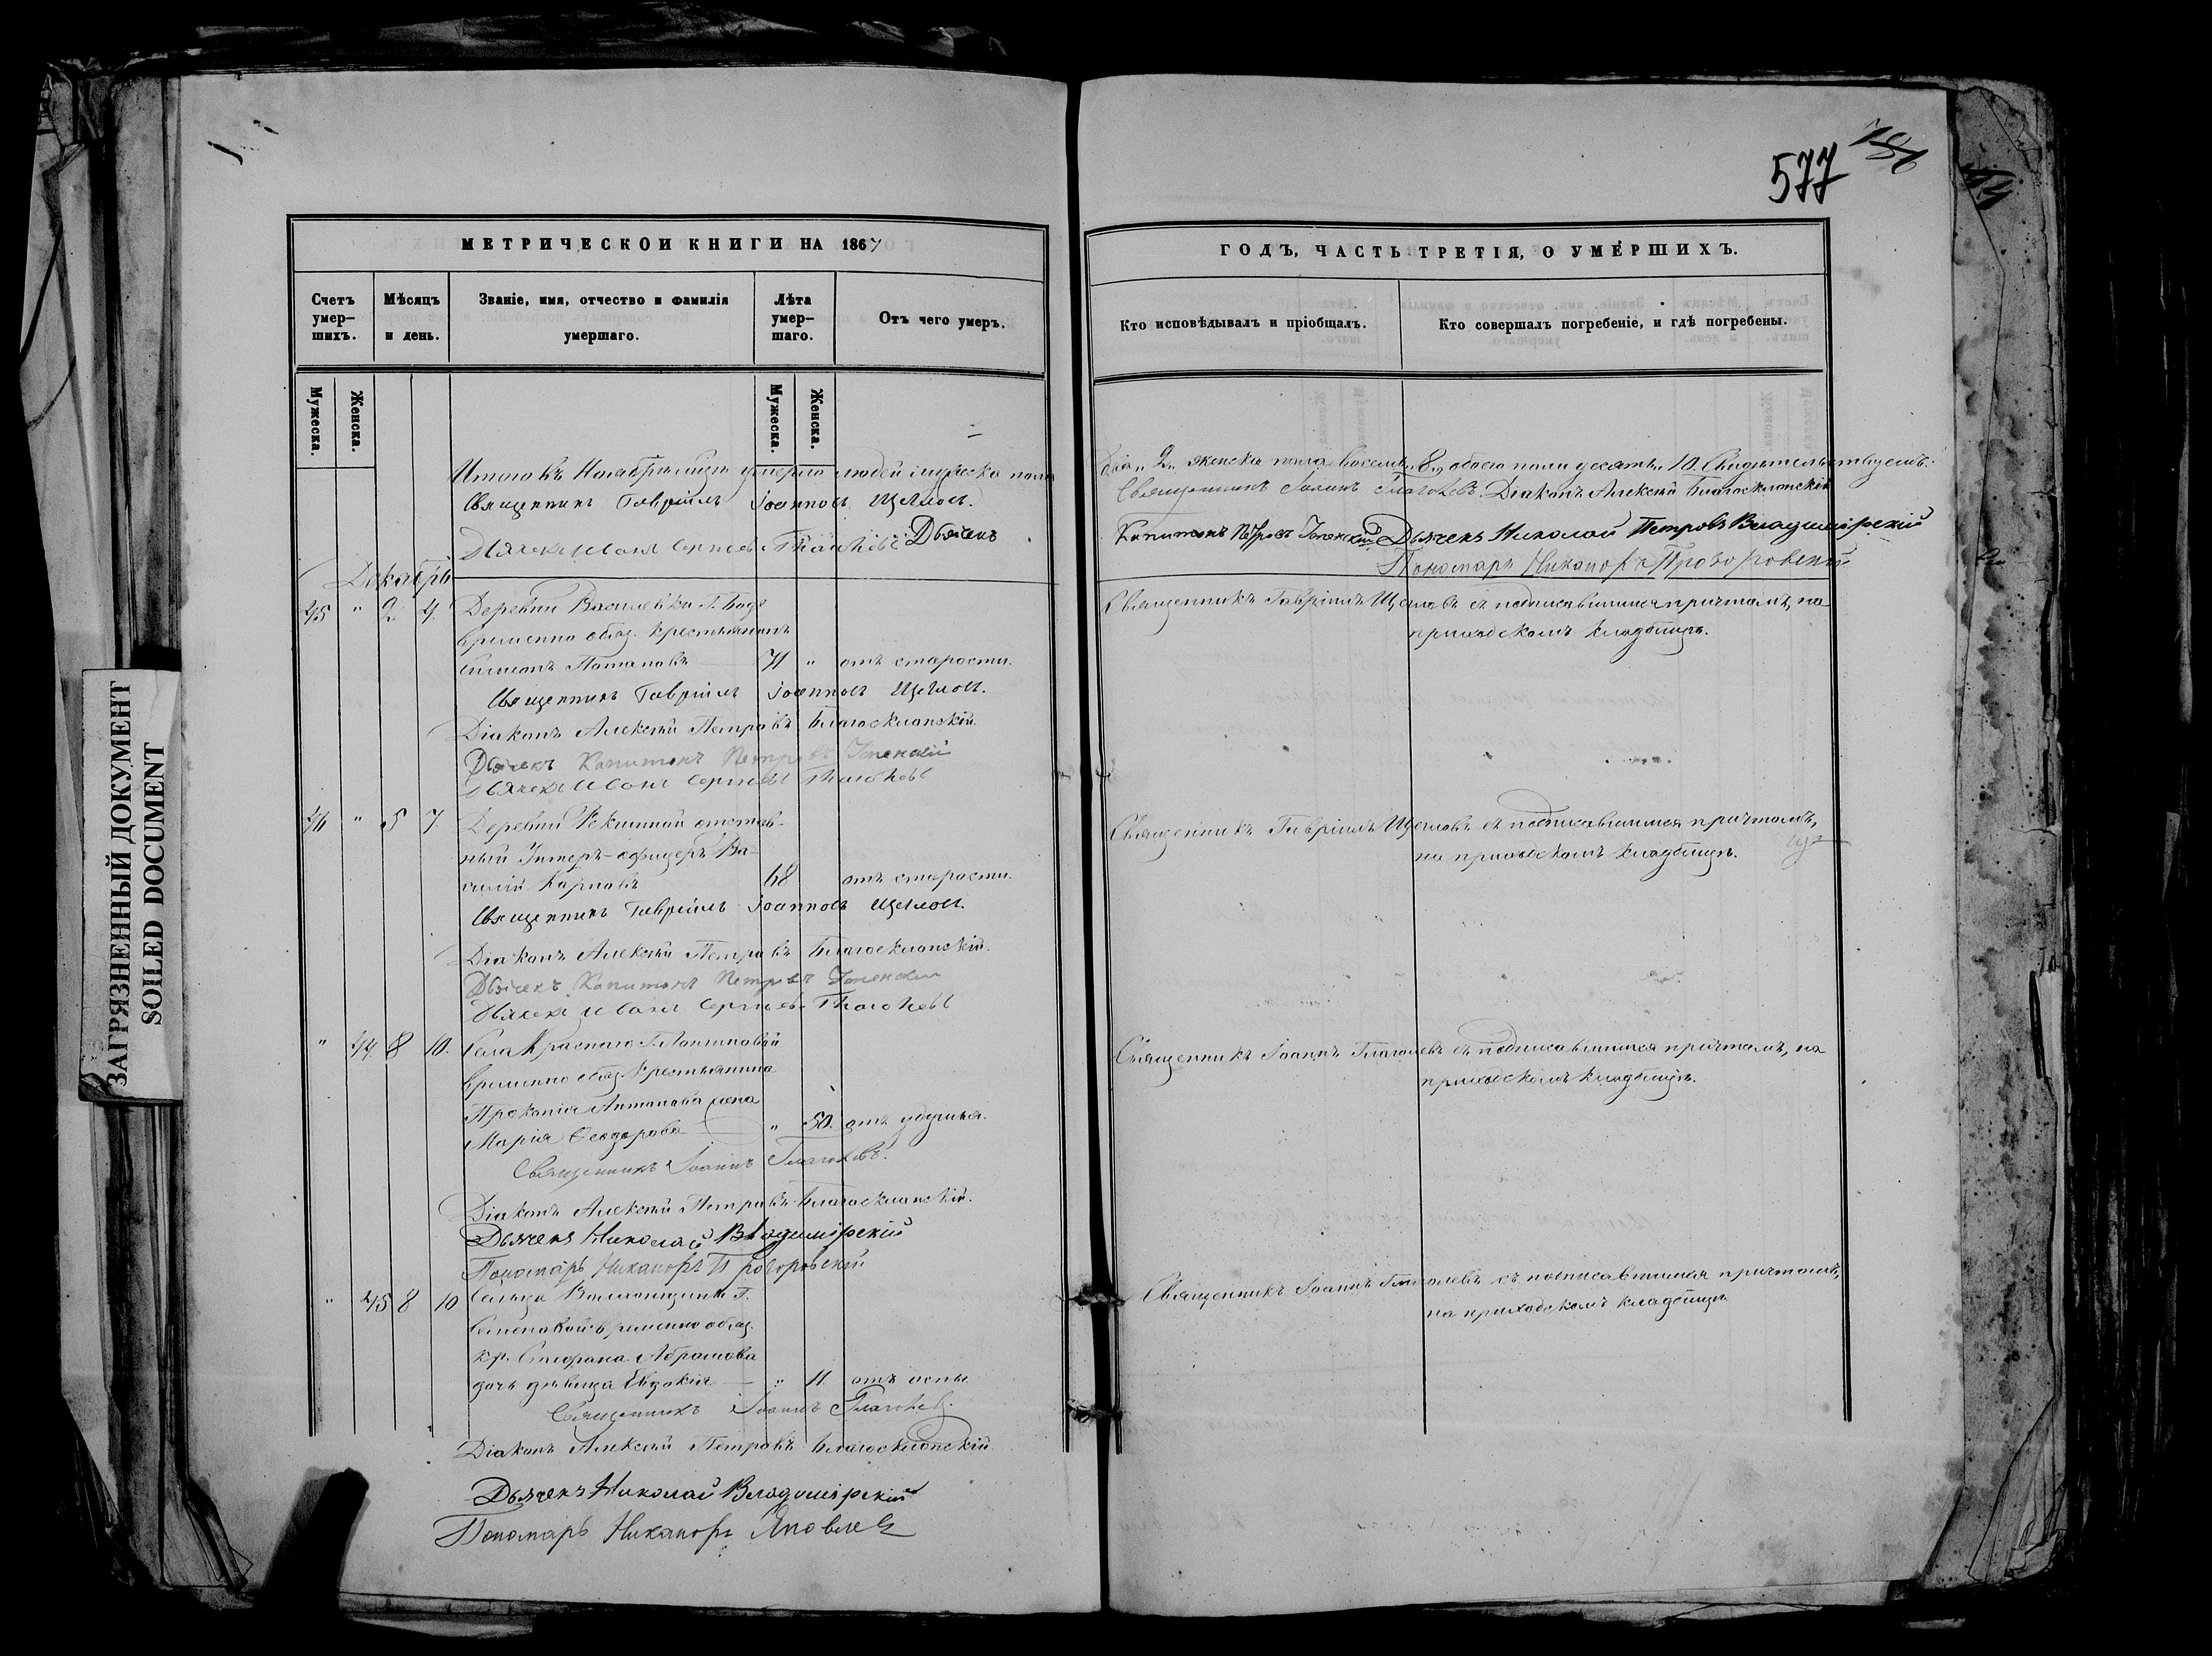 577
МЕТРИЧЕСКОЙ КНИГИ НА 1867
ГОДЪ, ЧАСТЬ ТРЕТІЯ, О УМЕРШИХЪ.
Счетъ умер-шихъ.
Мѣсяцъ и день.
Званіе, имя, отчество и фамилія умершаго.
Лѣта умер-шаго.
Отъ чего умеръ.
Кто исповѣдывалъ и пріобщалъ.
Кто совершалъ погребеніе, и гдѣ погребены.
Мужеска.
Женска.
Мужеска.
Женска.
Итого въ Ноябрѣ умерло людей мужеска пола
два „2„ женска пола восемь „8„ обоего пола десять „10. Свидетельствуемъ:
Священникъ Гавріилъ Іоанновъ Щегловъ.
Священникъ Іоаннъ Глаголевъ. Діаконъ Алексѣй Благосклонскій
Дьячекъ Иванъ Сергѣевъ Глаголевъ Дьячекъ
Капитонъ Петровъ Дьячекъ Николай Петровъ Владимірскій
Пономарь Никаноръ
Декабрь
45 " 2 4. Деревни Василевки Г.
временно обяз. крестьянинъ
Симеонъ Потаповъ 71 " отъ старости.
Священникъ Гавріилъ Щегловъ съ подписавшимся причтомъ, на
приходскомъ кладбищѣ.
Священникъ Гавріилъ Іоанновъ Щегловъ.
Діаконъ Алексѣй Петровъ Благосклонскій.
Дьячекъ Капитонъ Петровъ
Дьячекъ Иванъ Сергѣевъ Глаголевъ
46 " 5 7. Деревни отстав-
ный Унтеръ-офицеръ Ва-
силій Карповъ 68 отъ старости.
Священникъ Гавріилъ Щегловъ съ подписавшимся причтомъ,
на приходскомъ кладбищѣ.
Священникъ Гавріилъ Іоанновъ Щегловъ.
Діаконъ Алексѣй Петровъ Благосклонскій.
Дьячекъ Капитонъ Петровъ
Дьячекъ Иванъ Сергѣевъ Глаголевъ
" 44 8 10. Села Краснаго Г.
временно обяз. крестьянина
Прокопія Антонова жена
Марія Ѳеодорова " 50. отъ удушья.
Священникъ Іоаннъ Глаголевъ съ подписавшимся причтомъ, на
приходскомъ кладбищѣ.
Священникъ Іоаннъ Глаголевъ.
Діаконъ Алексѣй Петровъ Благосклонскій.
Дьячекъ Николай Владимірскій
Пономарь Никаноръ
" 45 8 10 Сельца Г.
временно обяз.
кр. Стефана Абрамова
дочь дѣвица Евдокія " 11. отъ оспы.
Священникъ Іоаннъ Глаголевъ съ подписавшимся причтомъ,
на приходскомъ кладбищѣ
Священникъ Іоаннъ Глаголевъ.
Діаконъ Алексѣй Петровъ Благосклонскій.
Дьячекъ Николай Владимірскій
Пономарь Никаноръ Яковлевъ
ЗАГРЯЗНЕННЫЙ ДОКУМЕНТ
SOILED DOCUMENT